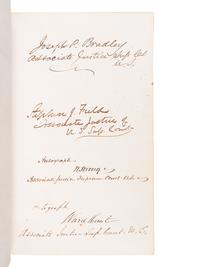 Joseph P. Bradley
Associate Justice Sup. Ct.
U.S.
Stephen J. Field
Associate Justice of
U.S. Sup. Court
Autograph
W. Strong
Associate Justice Supreme Court U.S.
Autograph
Ward Hunt
Associate Justice Sup. Court U.S.